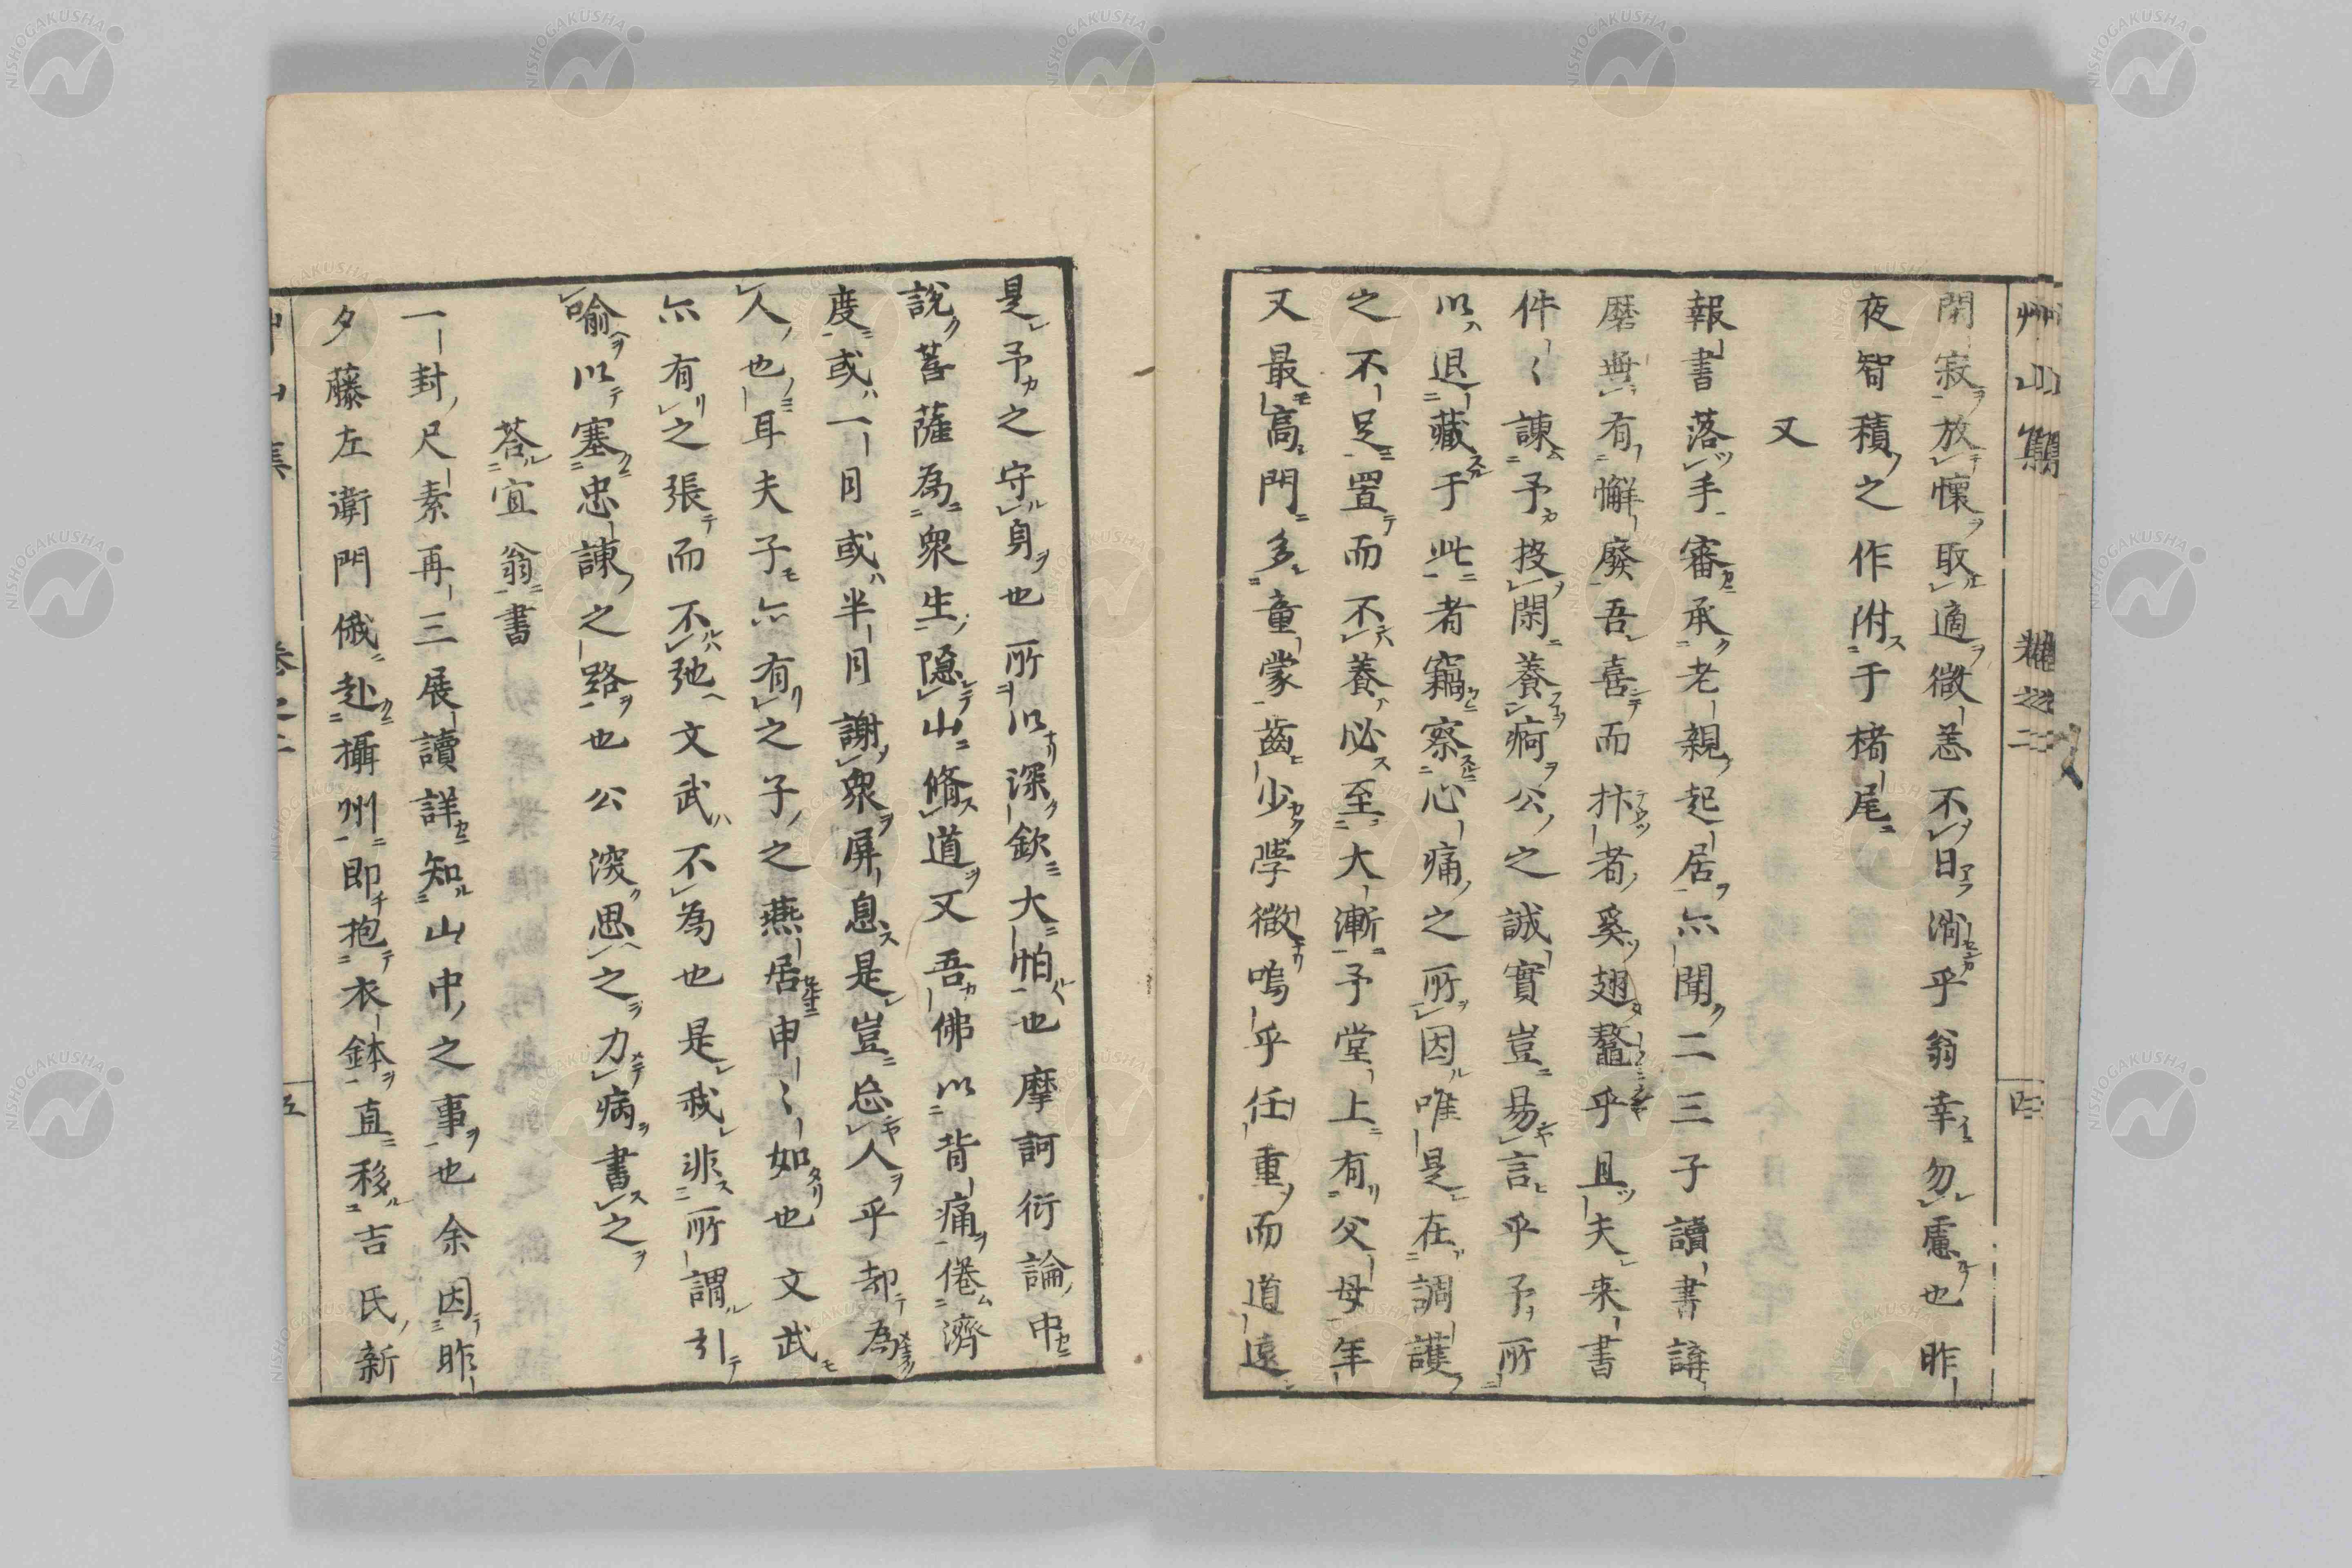 閑寂放懷取適微恙不日瀉乎翁幸勿慮也昨
夜智積之作附于楮尾
又
報書落手審承老親起居亦聞二三子讀書講
磨無有懈廢吾喜而抃者奚翅鼇乎且夫来書
件〻諌予投閑養痾公之誠實豈易言乎予所
以退藏于此者竊察心痛之所因唯是在調護
之不足置而不養必至大漸予堂上有父母年
又最高門多童蒙齒少學微嗚乎任重而道遠
是予之守身也所以深欽大怕也摩訶衍論中
說菩薩為衆生隱山脩道又吾佛以背痛倦濟
度或一月或半月謝衆屏息是豈忘人乎却為
人也耳夫子亦有之子之燕居申〻如也文武
亦有之張而不弛文武不為也是我非所謂引
喻以塞忠諌之路也公深思之力病書之
荅宜翁書
一封尺素再三展讀詳知山中之事也余因昨
夕藤左衛門俄赴攝州即抱衣鉢直移吉氏新
卷之二
四
五
NISHOGAKUSHA